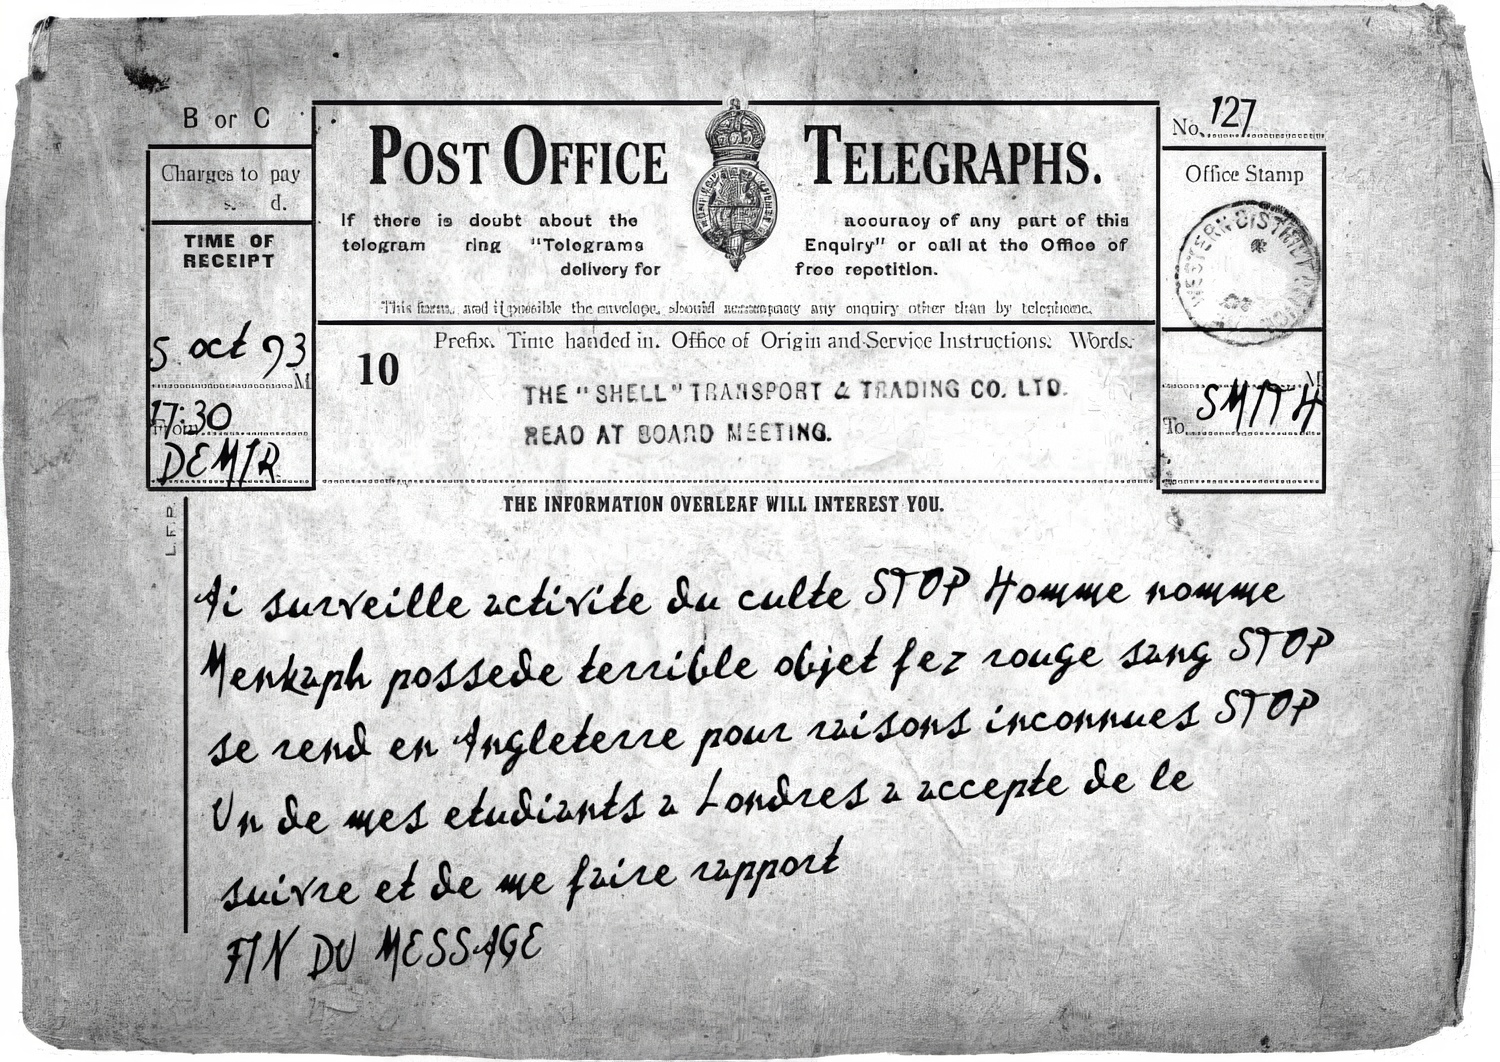 B or C
Charges to pay
s. d.
TIME OF
RECEIPT
5 oct 93
M
17:30
From
DEMIR
POST OFFICE TELEGRAPHS.
If there is doubt about the accuracy of any part of this
telegram ring "Telegrams Enquiry" or call at the Office of
delivery for free repetition.
This form, and if possible the envelope, should accompany any enquiry other than by telephone.
Prefix. Time handed in. Office of Origin and Service Instructions. Words.
10
THE "SHELL" TRANSPORT & TRADING CO. LTD.
READ AT BOARD MEETING.
No. 127
Office Stamp
WESTERN DISTRICT
M
To SMITH
THE INFORMATION OVERLEAF WILL INTEREST YOU.
L.F.P.
Ai surveille activite du culte STOP Homme nomme
Menkaph possede terrible objet fez rouge sang STOP
se rend en Angleterre pour raisons inconnues STOP
Un de mes etudiants a Londres a accepte de le
suivre et de me faire rapport
FIN DU MESSAGE